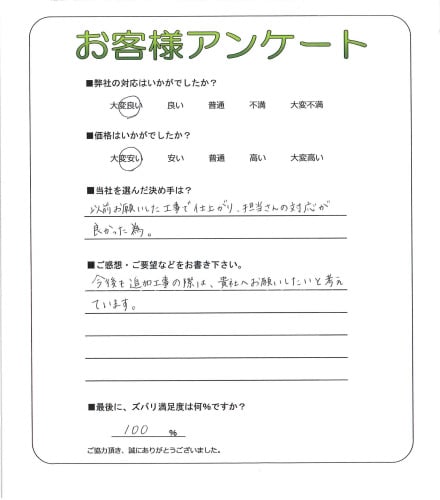 お客様アンケート
■弊社の対応はいかがでしたか?
大変良い 良い 普通 不満 大変不満
■価格はいかがでしたか?
大変安い 安い 普通 高い 大変高い
■当社を選んだ決め手は?
以前お願いした工事で仕上がり、担当さんの対応が
良かった為。
■ご感想・ご要望などをお書き下さい。
今後も追加工事の際は、貴社へお願いしたいと考え
ています。
■最後に、ズバリ満足度は何%ですか?
100 %
ご協力頂き、誠にありがとうございました。